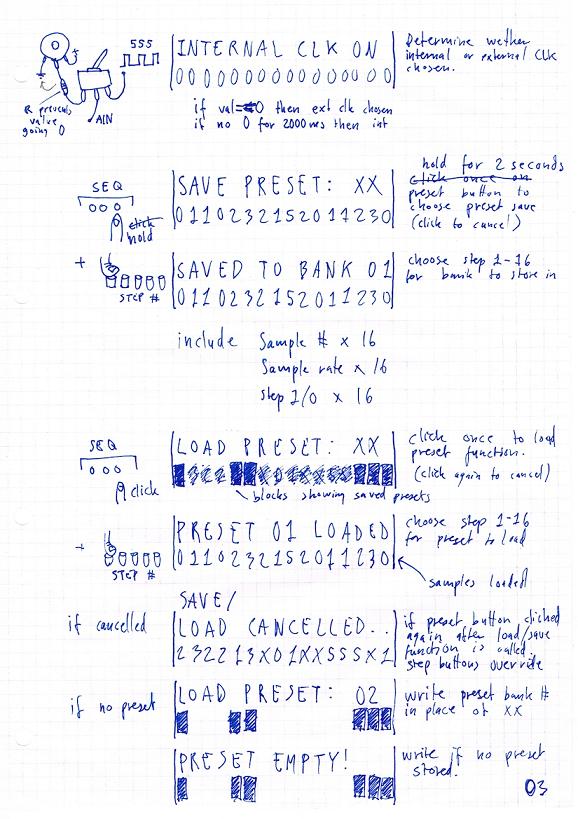 555
INTERNAL CLK ON
0000000000000000
Determine wether
internal or external CLK
chosen.
R prevents
value
going 0
AIN
if val=0 then ext clk chosen
if no 0 for 2000ms then int
SEQ
000
click
hold
SAVE PRESET: XX
0110232152011230
hold for 2 seconds
click once on
preset button to
choose preset save
(click to cancel)
+
STEP #
SAVED TO BANK 01
0110232152011230
choose step 1-16
for bank to store in
include Sample # x 16
Sample rate x 16
Step I/O x 16
SEQ
000
click
LOAD PRESET: XX
click once to load
preset function.
(click again to cancel)
blocks showing saved presets
+
STEP #
PRESET 01 LOADED
0110232152011230
choose step 1-16
for preset to load
samples loaded
if cancelled
SAVE/
LOAD CANCELLED..
232213X01XXSSSX1
if preset button clicked
again after load/save
function is called.
step buttons override
if no preset
LOAD PRESET: 02
write preset bank #
in place of XX
PRESET EMPTY!
write if no preset
stored.
03